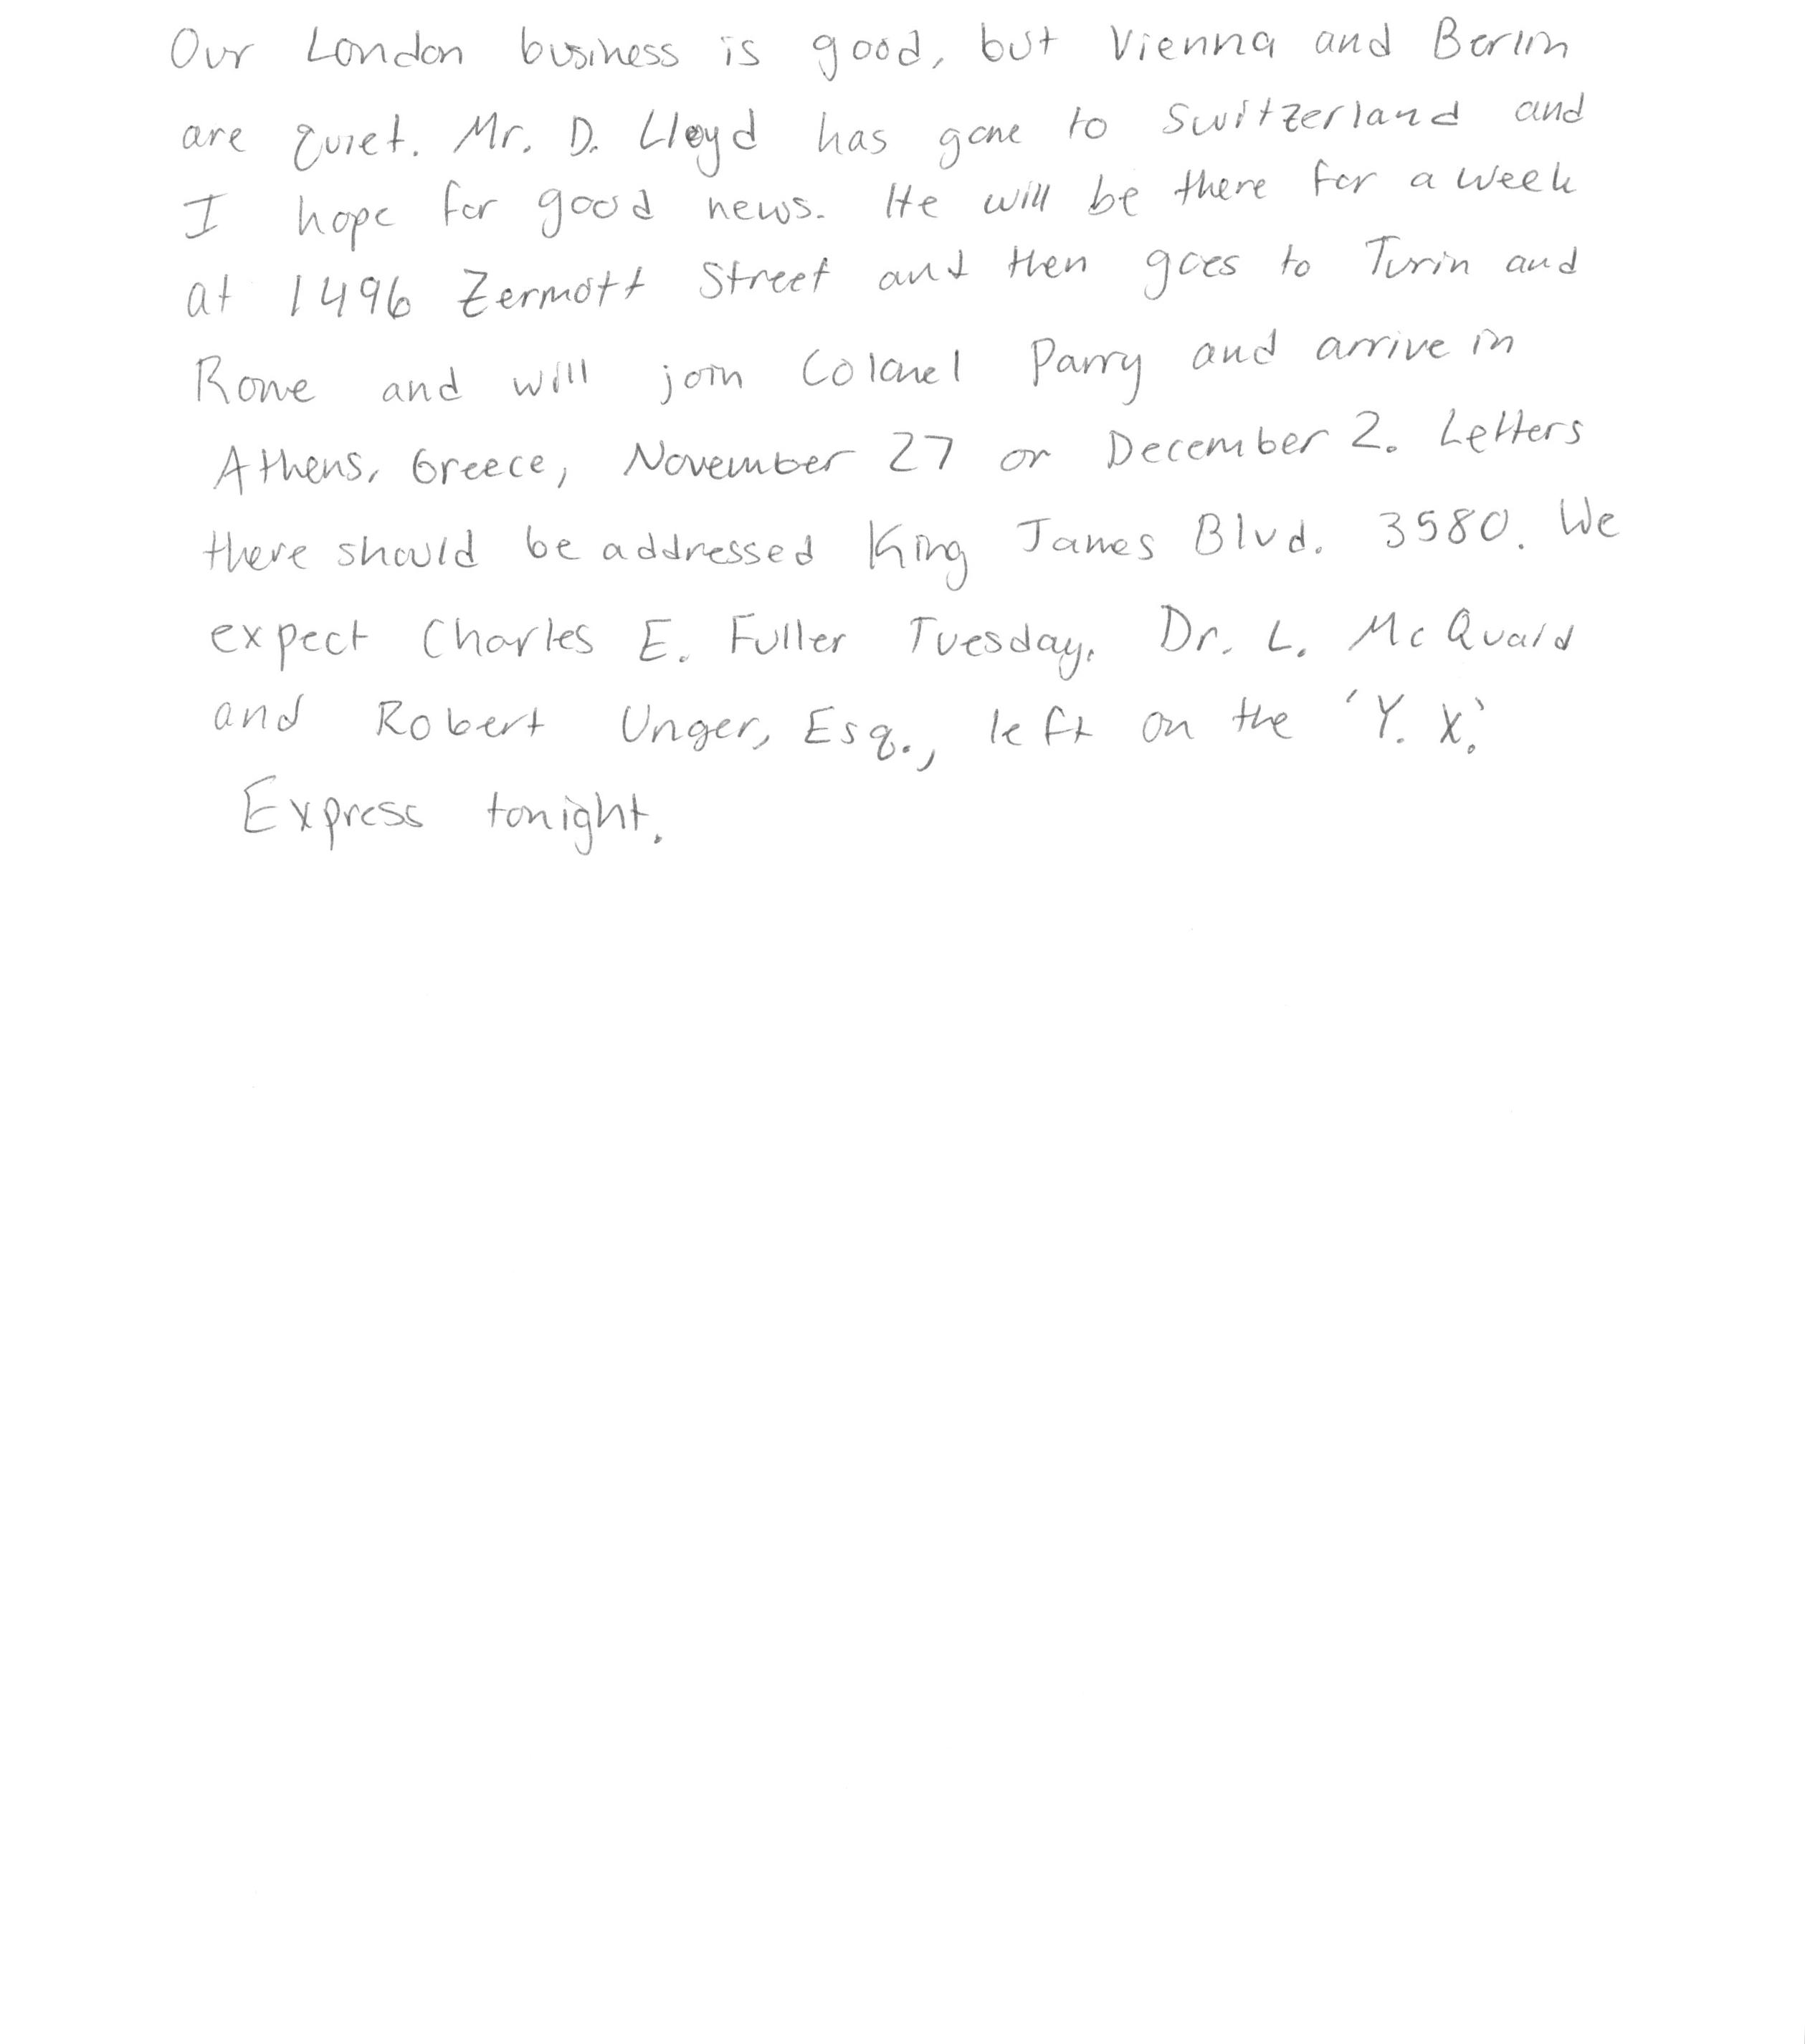 Our London business is good, but Vienna and Berlin
are quiet. Mr. D. Lloyd has gone to Switzerland and
I hope for good news. He will be there for a week
at 1496 Zermott Street and then goes to Turin and
Rome and will join Colonel Parry and arrive in
Athens, Greece, November 27 or December 2. Letters
there should be addressed King James Blvd. 3580. We
expect Charles E. Fuller Tuesday. Dr. L. McQuaid
and Robert Unger, Esq., left on the 'Y. X.'
Express tonight.